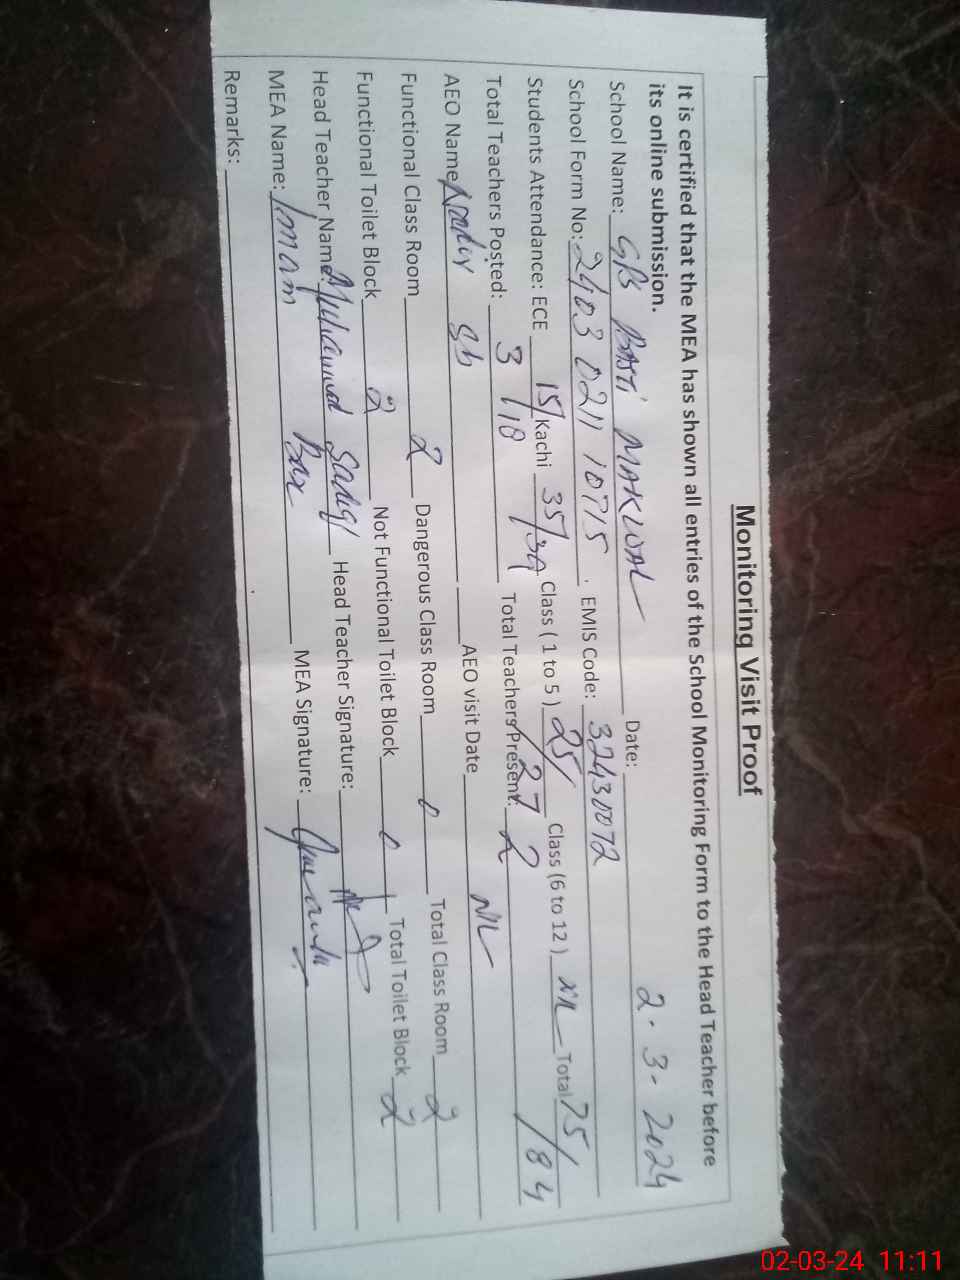 Monitoring Visit Proof
It is certified that the MEA has shown all entries of the School Monitoring Form to the Head Teacher before
its online submission.
School Name: GPS BASTI MAKWAL Date: 2-3-2024
School Form No: 2403 0211 10715. EMIS Code: 32430072
Students Attendance: ECE 15/18 Kachi 35/39 Class (1 to 5) 25/27 Class (6 to 12) NIL Total 75/84
Total Teachers Posted: 3 Total Teachers Present: 2
AEO Name Sb AEO visit Date NIL
Functional Class Room 2 Dangerous Class Room 0 Total Class Room 2
Functional Toilet Block 2 Not Functional Toilet Block 0 Total Toilet Block 2
Head Teacher Name: Muhammad Sadiq Head Teacher Signature:
MEA Name: Imam Bux MEA Signature:
Remarks:
02-03-24 11:11